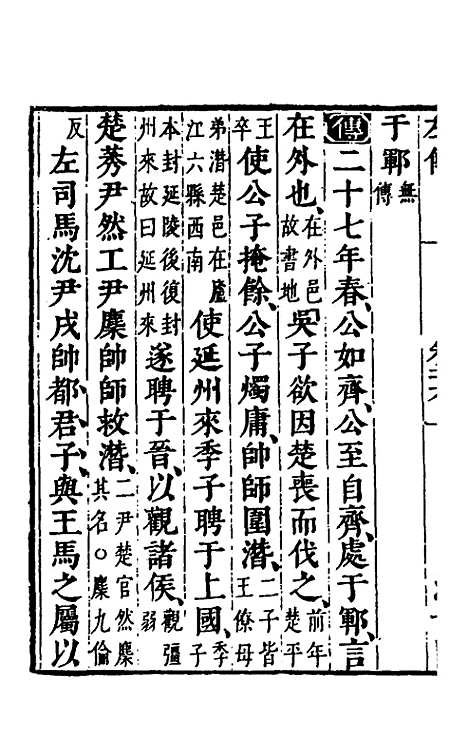 于鄆無傳
傳二十七年春、公如齊、公至自齊、處于鄆、言
在外也、在外邑故書地吳子欲因楚喪而伐之、前年楚平
王卒使公子掩餘、公子燭庸、帥師圍潛、二子皆王僚母
弟潛楚邑在廬江六縣西南使延州來季子聘于上國、季子
本封延陵後復封州來故曰延州來遂聘于晉、以觀諸侯、觀彊弱
楚莠尹然工尹麇帥師救潛、二尹楚官然麇其名○麇九倫
反左司馬沈尹戌帥都、君子、與王馬之屬以